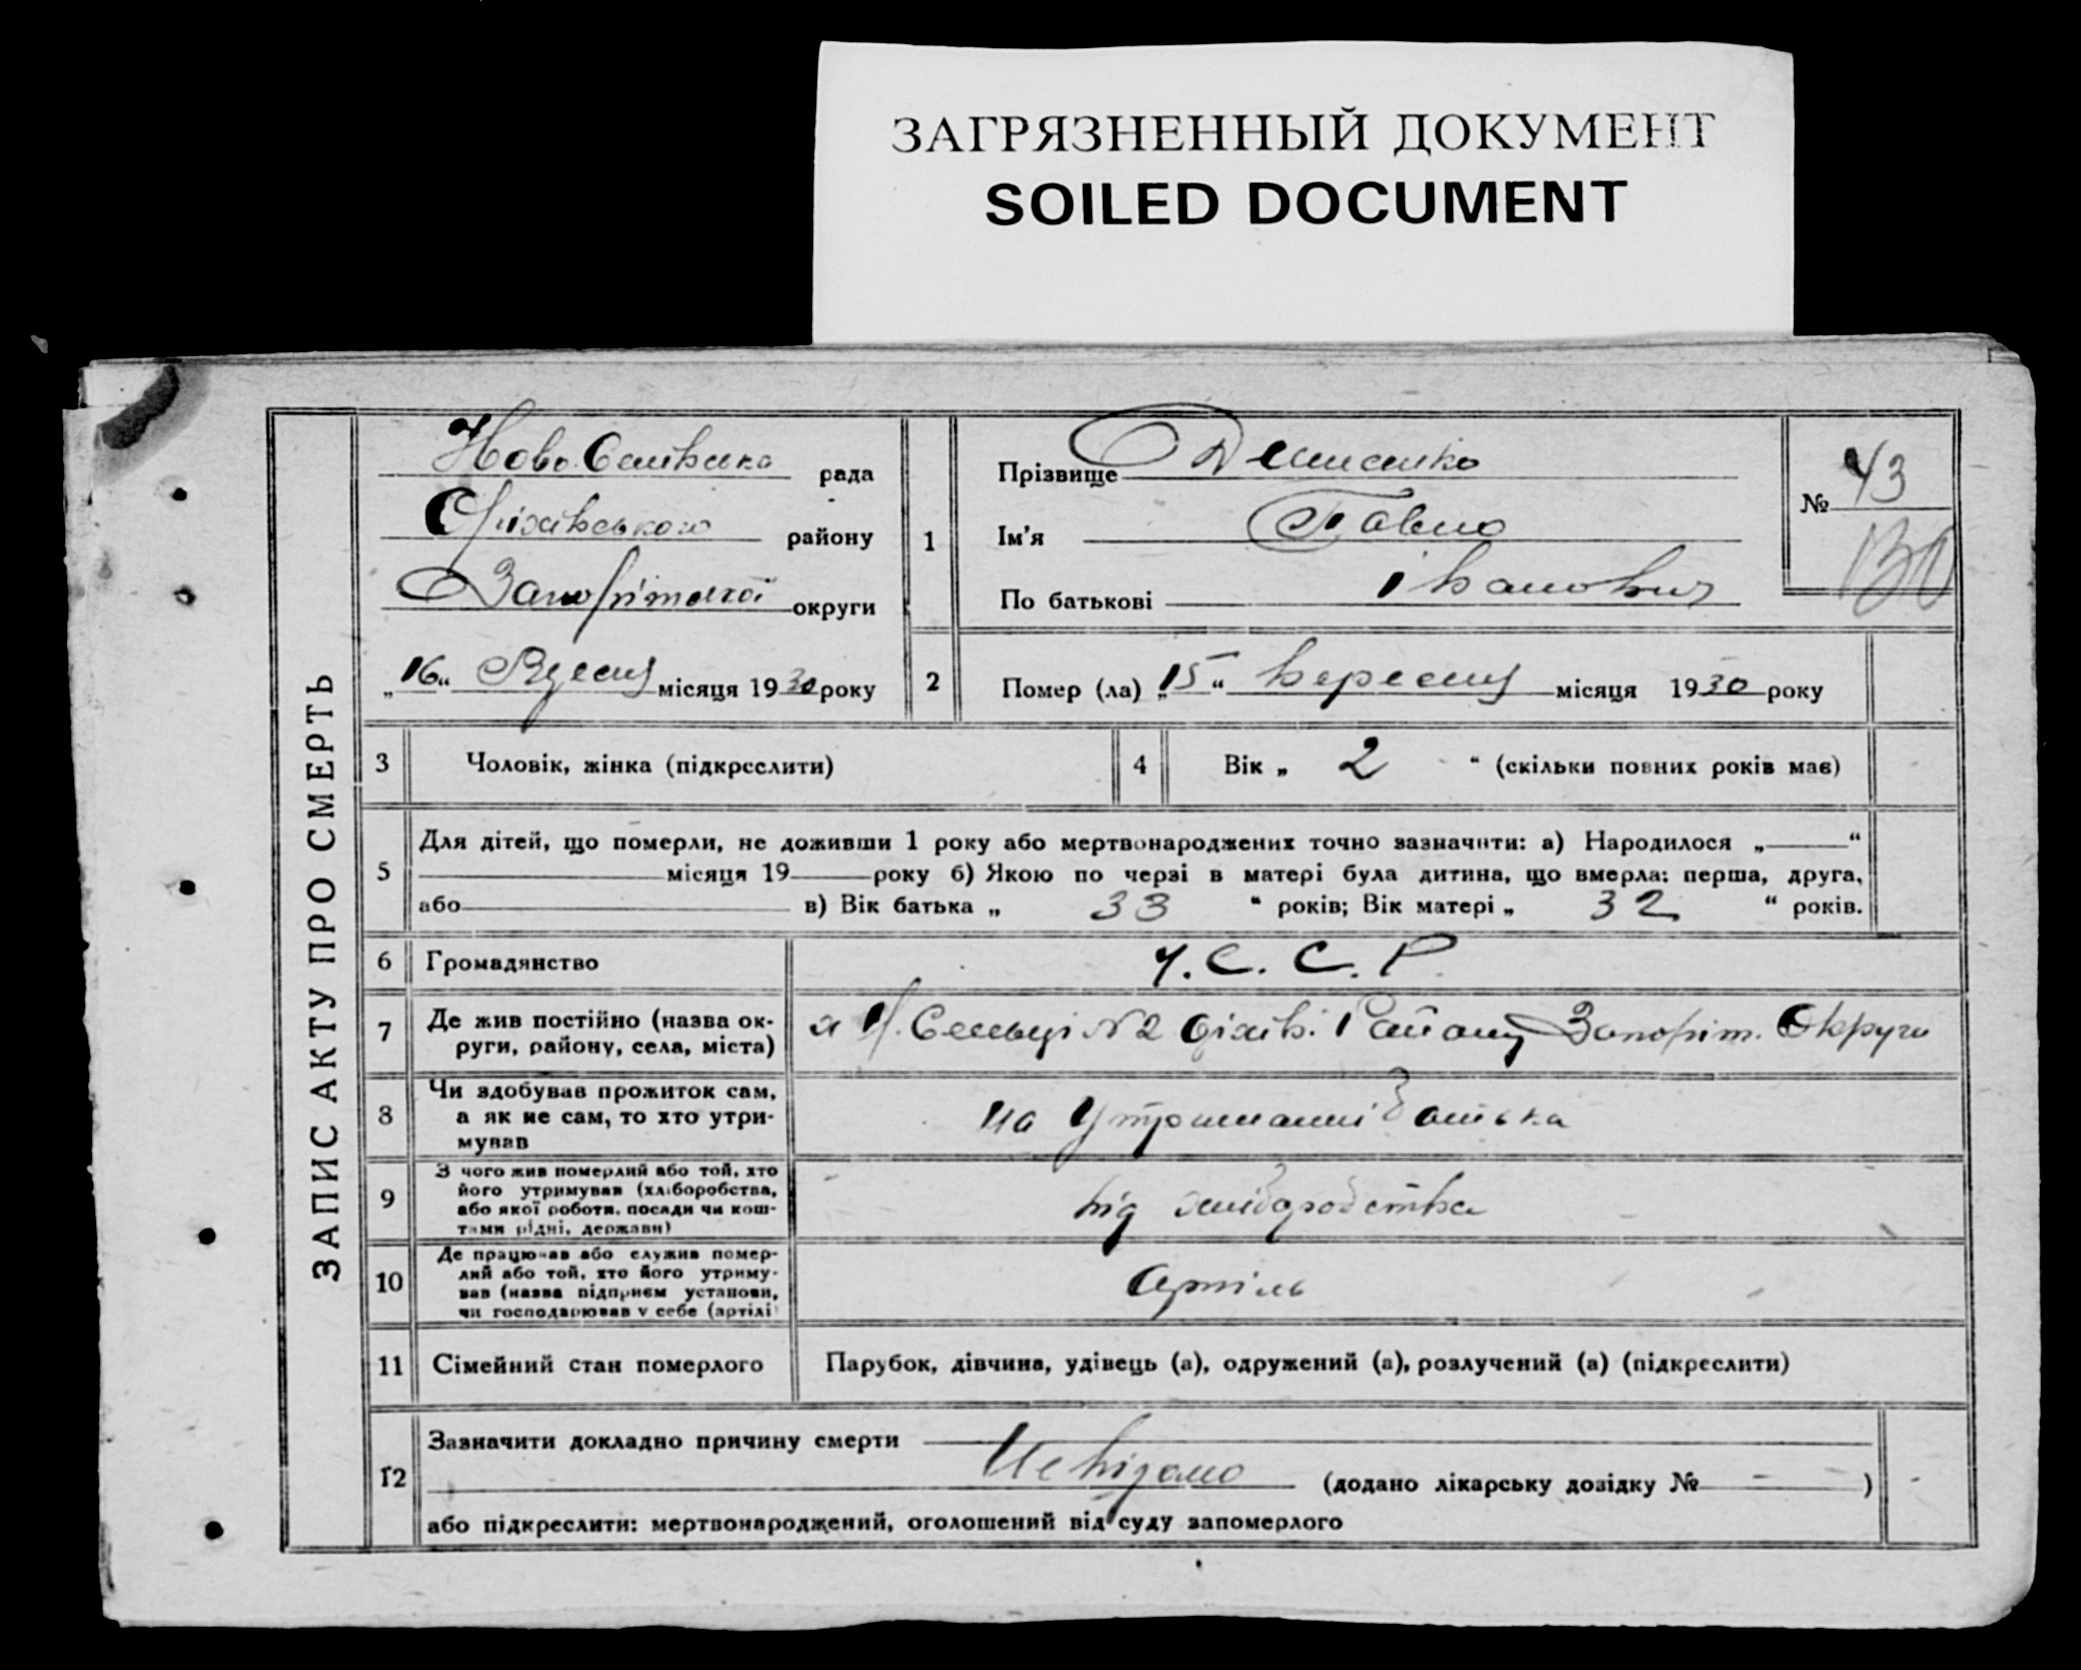 ЗАГРЯЗНЕННЫЙ ДОКУМЕНТ
SOILED DOCUMENT
ЗАПИС АКТУ ПРО СМЕРТЬ
рада
району
Запоріжської округи
„16“ місяця 1930 року
1
Прізвище
Ім'я Павло
По батькові Іванович
№ 43
130
2
Помер (ла) „15“ Вересня місяця 1930 року
3
Чоловік, жінка (підкреслити)
4
Вік „ 2 “ (скільки повних років має)
5
Для дітей, що померли, не доживши 1 року або мертвонароджених точно зазначити: а) Народилося „ “
місяця 19 року б) Якою по черзі в матері була дитина, що вмерла: перша, друга,
або в) Вік батька „ 33 “ років; Вік матері „ 32 “ років.
6
Громадянство
У.С.С.Р.
7
Де жив постійно (назва ок-
руги, району, села, міста)
№ 2 Оріхів. Району Запоріж. Округи
8
Чи здобував прожиток сам,
а як не сам, то хто утри-
мував
на Утриманні батька
9
З чого жив померлий або той, хто
його утримував (хліборобства,
або якої роботи, посади чи кош-
тами рідні, держави)
від хліборобства
10
Де працював або служив помер-
лий або той, хто його утриму-
вав (назва підприєм установи,
чи господарював у себе (артілі
Артіль
11
Сімейний стан померлого
Парубок, дівчина, удівець (а), одружений (а), розлучений (а) (підкреслити)
12
Зазначити докладно причину смерти
Невідомо (додано лікарську довідку № — )
або підкреслити: мертвонароджений, оголошений від суду запомерлого